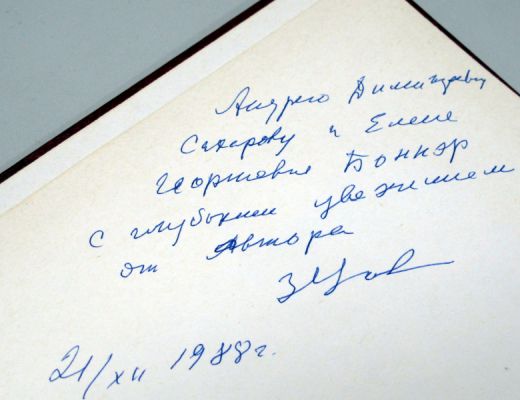 Андрею Дмитриевичу
Сахарову и Елене
Георгиевне Боннэр
с глубоким уважением
от Автора
21/XII 1988 г.